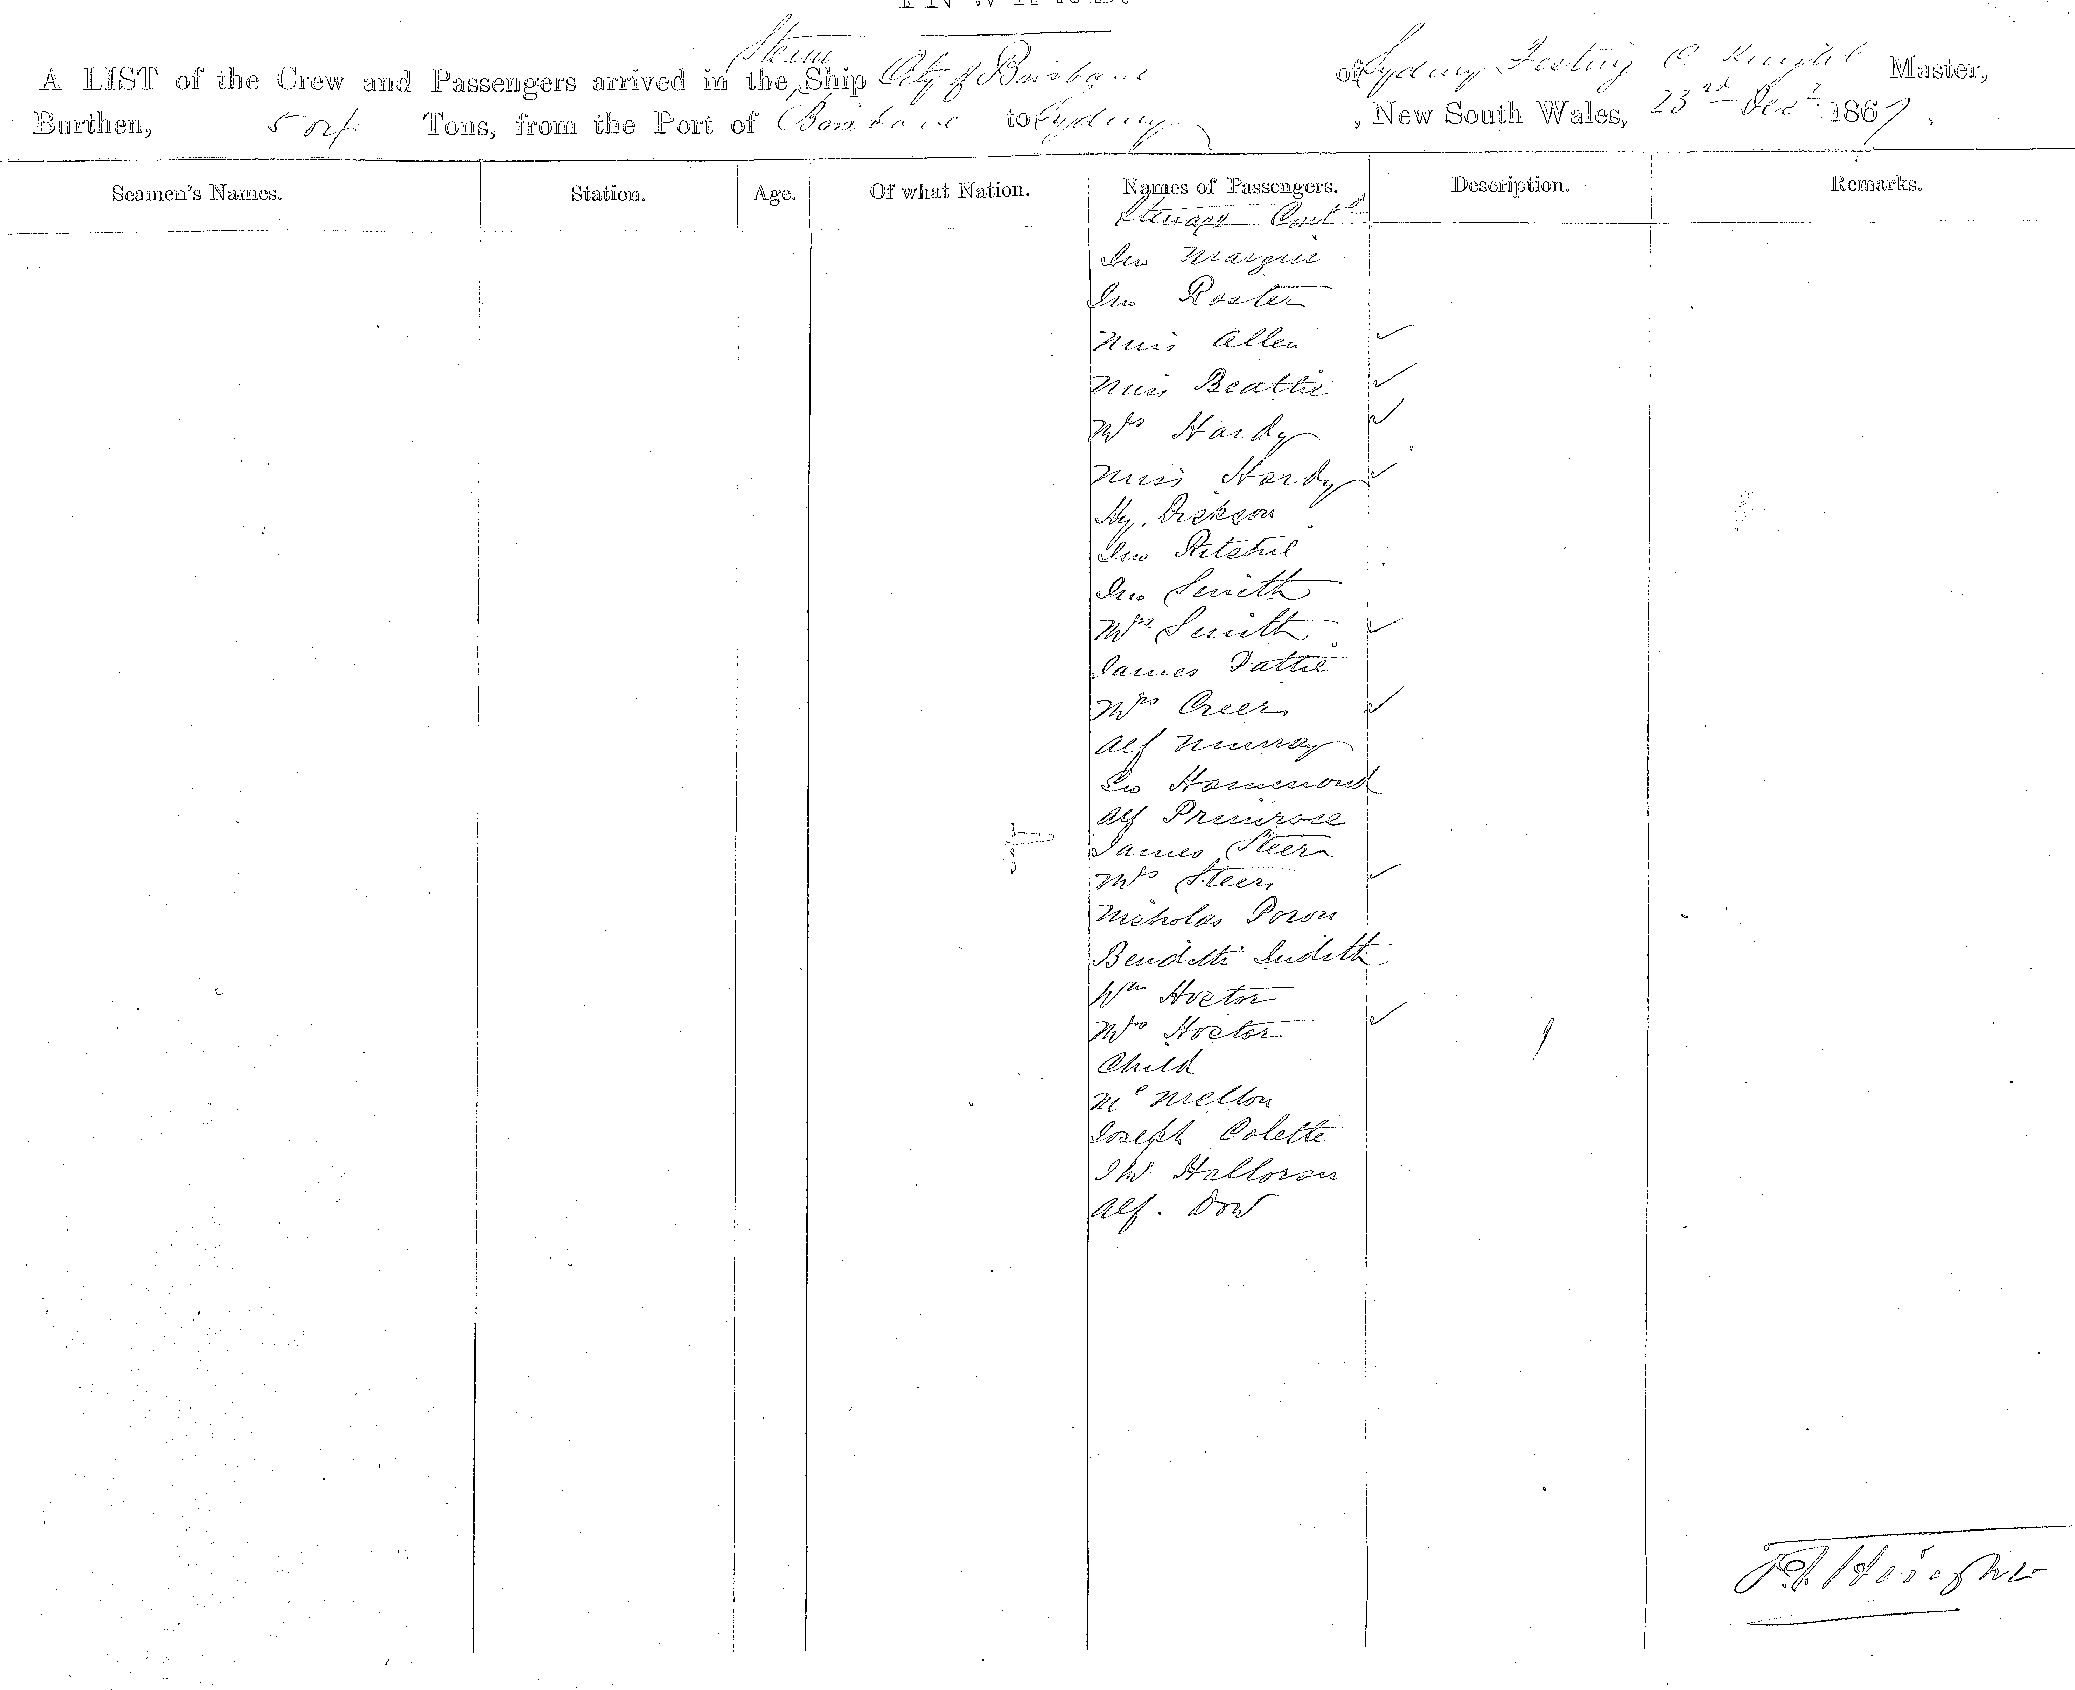 Steam
A LIST of the Crew and Passengers arrived in the Ship City of Brisbane of Sydney C Knight Master,
Burthen, 504 Tons, from the Port of Brisbane to Sydney, New South Wales, 23rd Decr 1867.
Seamen's Names. Station. Age. Of what Nation. Names of Passengers. Description. Remarks.
Steerage Contd
Jno
Jno Roster
Miss Allen
Miss Beattie
Mrs Hardy
Miss Hardy
Hy. Dickson
Jno Ritchie
Jno Smith
Mrs Smith
James Tattie
Mrs Creer
Alf Murray
Geo Hammond
Alf Primrose
James Steer
Mrs Steer
Nicholas Poron
Benditti Judith
Wm Hoctor
Mrs Hoctor
Child
Mc Mellon
Joseph Colette
JW Halloran
Alf. Dow